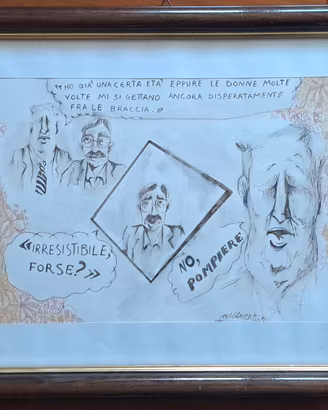 "HO GIA' UNA CERTA ETA' EPPURE LE DONNE MOLTE
VOLTE MI SI GETTANO ANCORA DISPERATAMENTE
FRA LE BRACCIA.»
«IRRESISTIBILE,
FORSE?»
NO,
POMPIERE